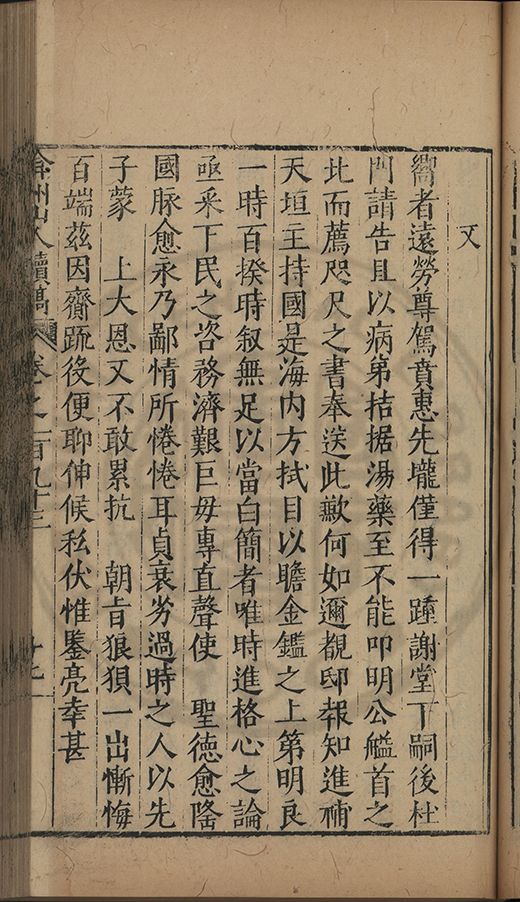 又
嚮者遠勞尊駕賁惠先壠僅得一踵謝堂下嗣後杜
門請告且以病第拮据湯藥至不能叩明公艗首之
此而薦咫尺之書奉送此歉何如邇覩邸報知進補
天垣主持國是海内方拭目以瞻金鑑之上第明良
一時百揆時叙無足以當白簡者唯時進格心之論
亟采下民之咨務濟艱巨毋專直聲使　聖德愈隆
國脉愈永乃鄙情所惓惓耳貞衰劣過時之人以先
子蒙　上大恩又不敢累抗　朝旨狼狽一出慚悔
百端茲因齎䟽後便聊伸候私伏惟鑒亮幸甚
弇州山人續稿　卷之一百九十三